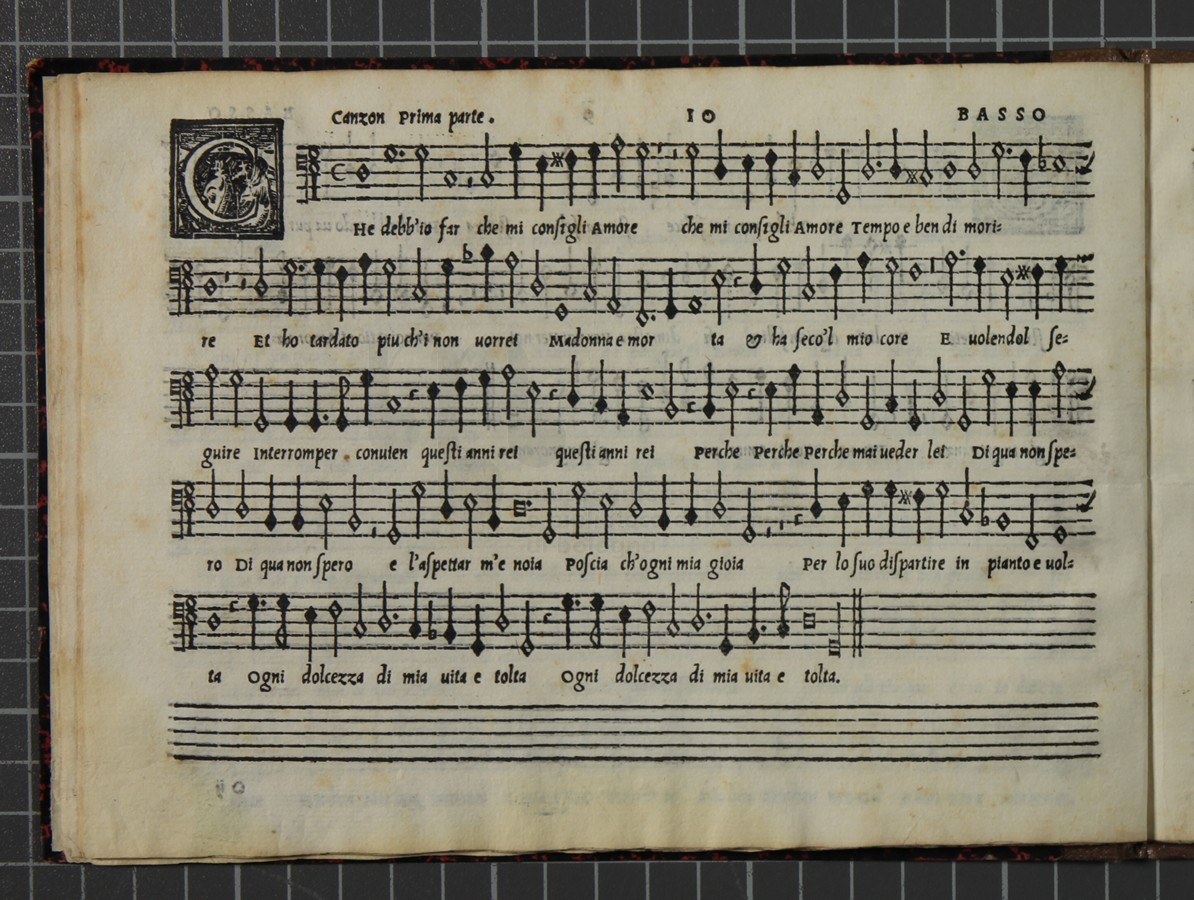 Canzon Prima parte. 10 BASSO
CHe debb'io far che mi consigli Amore che mi consigli Amore Tempo e ben di mori=
re Et ho tardato piu ch'i non uorrei Madonna e mor ta & ha seco'l mio core E uolendol se=
guire Interromper conuien questi anni rei questi anni rei Perche Perche Perche mai ueder lei Di qua non spe=
ro Di qua non spero e l'aspettar m'e noia Poscia ch'ogni mia gioia Per lo suo dispartire in pianto e uol=
ta Ogni dolcezza di mia uita e tolta Ogni dolcezza di mia uita e tolta.